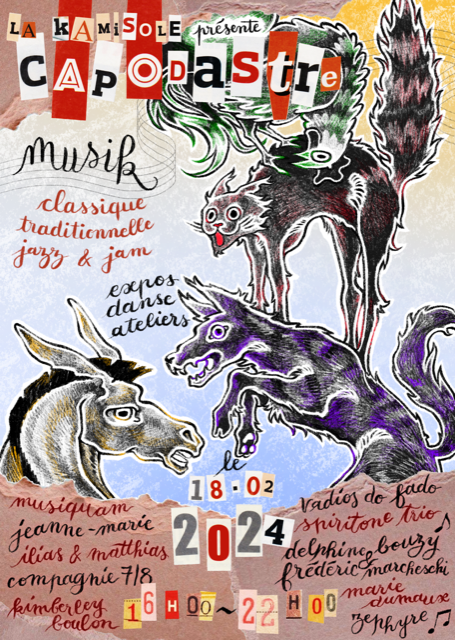 LA KAMiSOLE présente
CAPODastre
musik
classique
traditionnelle
jazz & jam
expos
danse
ateliers
le
18.02
2024
musiquam
jeanne-marie
ilias & matthias
compagnie 7/8
kimberley
boulon
16H00~22H00
vadios do fado
spiritone trio
delphine bouzy
&
frédéric marcheschi
marie
dumaux
zephyre